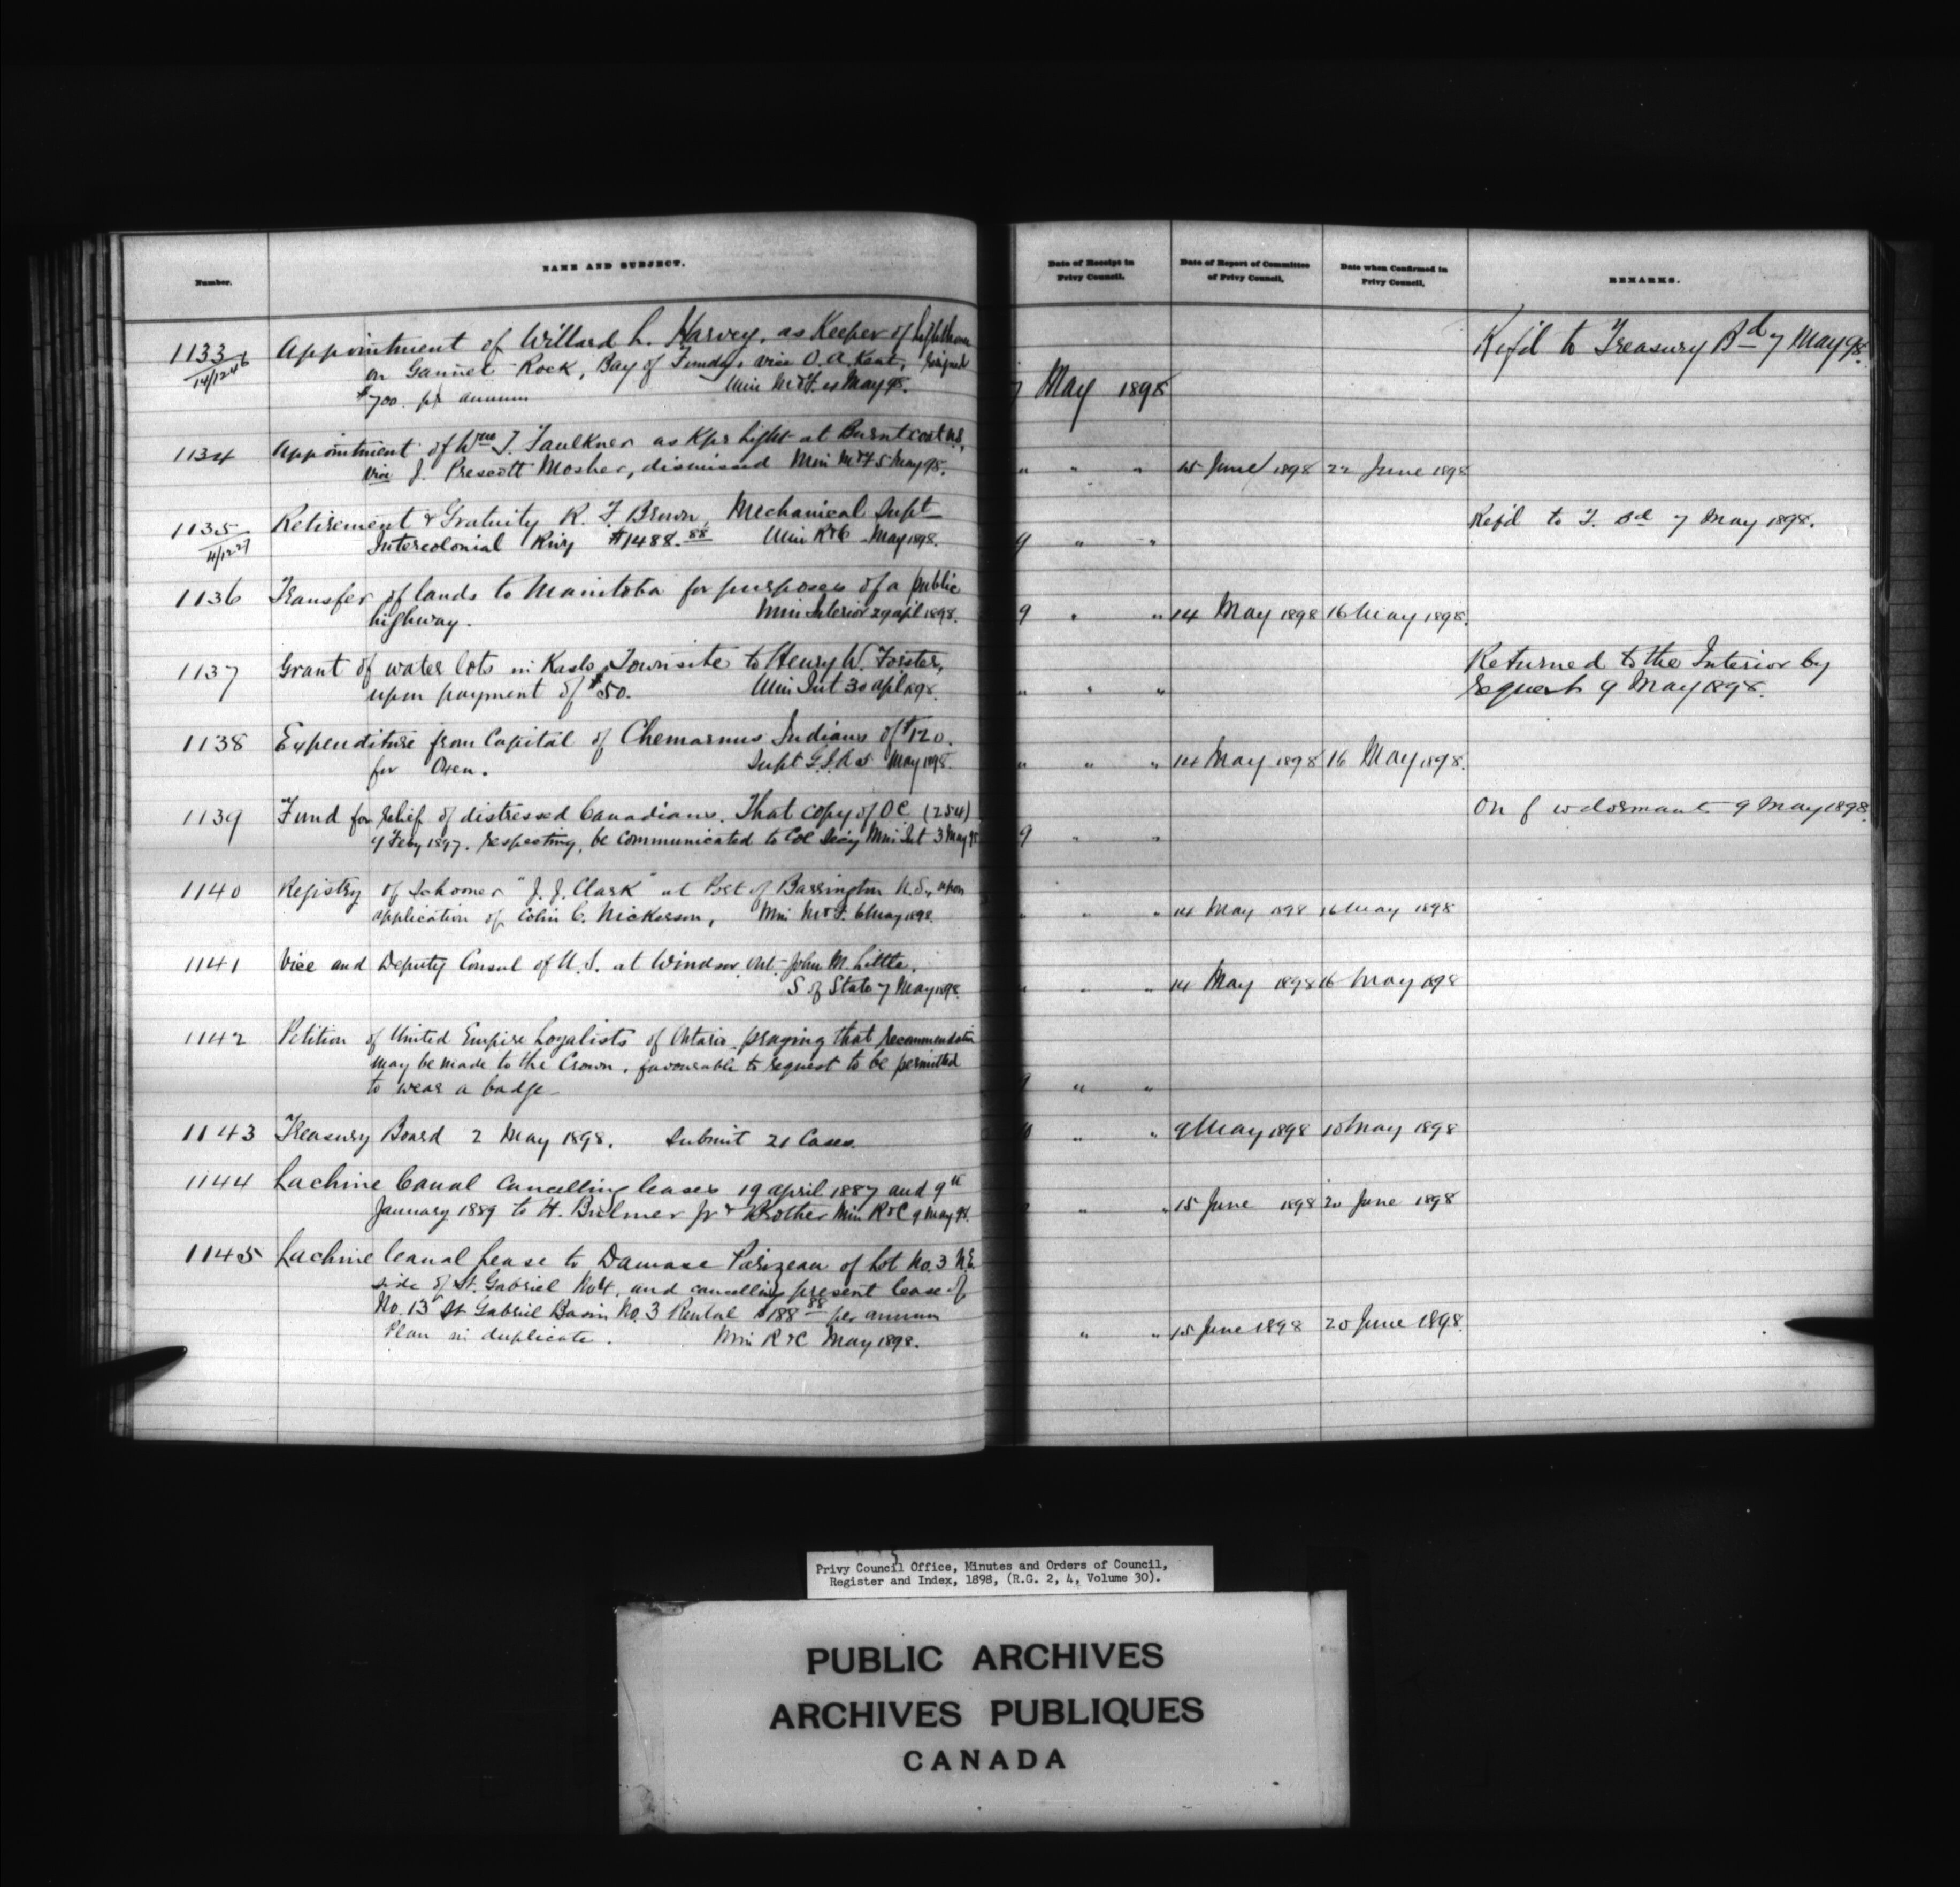 Number.
NAME AND SUBJECT.
Date of Receipt in
Privy Council.
Date of Report of Committee
of Privy Council,
Date when Confirmed in
Privy Council,
REMARKS.
1133 Appointment of Willard L. Harvey, as Keeper of lighthouse
14/1246 on Gannet Rock, Bay of Fundy, vice O. A. Kent, resigned
$700. pr annum Min M&F May 98.
7 May 1898
Ref'd to Treasury Bd 7 May 98.
1134 Appointment of Wm J. Faulkner as Kpr light at Burntcoat N.S.
vice J. Prescott Mosher, dismissed Min M&F 5 May 98.
" " " 15 June 1898 22 June 1898
1135 Retirement & Gratuity R. F. Brown, Mechanical Supt
11/1227 Intercolonial Rwy $1488.88 Min R&C May 1898.
9 " "
Ref'd to T. Bd 7 May 1898.
1136 Transfer of lands to Manitoba for purposes of a public
highway. Min Interior 29 apl 1898.
9 " " 14 May 1898 16 May 1898.
1137 Grant of water lots in Kaslo Townsite to Henry W. Forster,
upon payment of $50. Min Int 30 apl 1898.
" " "
Returned to the Interior by
request 9 May 1898.
1138 Expenditure from Capital of Chemainus Indians of $120.
for Oxen. Supt G.I.A 5 May 1898.
" " " 14 May 1898 16 May 1898.
1139 Fund for relief of distressed Canadians. That copy of OC (254)
9 Feby 1897. respecting, be communicated to Col Secy Min Int 3 May 98
9 " "
On f w dormants 9 May 1898.
1140 Registry of Schooner "J. J. Clark" at Port of Barrington N.S., upon
application of Colin C. Nickerson, Min M&F. 6 May 1898.
" " " 14 May 1898 16 May 1898
1141 Vice and Deputy Consul of U.S. at Windsor Ont. John M. Little.
S of State 7 May 1898.
" " " 14 May 1898 16 May 1898
1142 Petition of United Empire Loyalists of Ontario praying that recommendation
may be made to the Crown, favourable to request to be permitted
to wear a badge
9 " "
1143 Treasury Board 2 May 1898. Submit 21 Cases.
10 " " 9 May 1898 10 May 1898
1144 Lachine Canal Cancelling leases 19 april 1887 and 9th
January 1889 to H. Bulmer Jr & Brother Min R&C 9 May 98.
" " 15 June 1898 20 June 1898
1145 Lachine Canal Lease to Damase Parizeau of Lot No. 3 N.E.
side of St. Gabriel No 4, and cancelling present lease of
No. 13 St Gabriel Basin No. 3 Rental $188.88 per annum
Plan in duplicate. Min R&C May 1898.
" " 15 June 1898 20 June 1898.
Privy Council Office, Minutes and Orders of Council,
Register and Index, 1898, (R.G. 2, 4, Volume 30).
PUBLIC ARCHIVES
ARCHIVES PUBLIQUES
CANADA